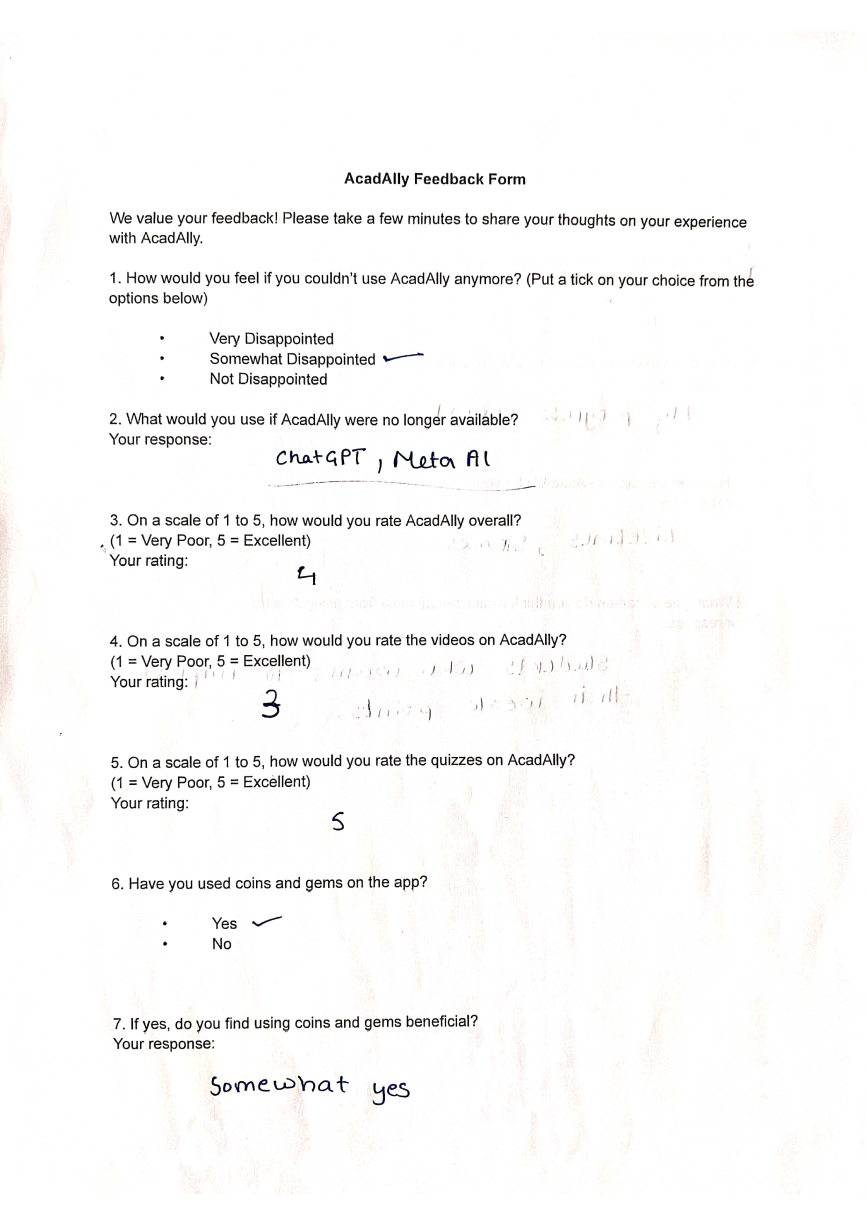 AcadAlly Feedback Form
We value your feedback! Please take a few minutes to share your thoughts on your experience
with AcadAlly.
1. How would you feel if you couldn't use AcadAlly anymore? (Put a tick on your choice from the
options below)
• Very Disappointed
• Somewhat Disappointed ✓
• Not Disappointed
2. What would you use if AcadAlly were no longer available?
Your response:
ChatGPT, Meta AI
3. On a scale of 1 to 5, how would you rate AcadAlly overall?
(1 = Very Poor, 5 = Excellent)
Your rating:
4
4. On a scale of 1 to 5, how would you rate the videos on AcadAlly?
(1 = Very Poor, 5 = Excellent)
Your rating:
3
5. On a scale of 1 to 5, how would you rate the quizzes on AcadAlly?
(1 = Very Poor, 5 = Excellent)
Your rating:
5
6. Have you used coins and gems on the app?
• Yes ✓
• No
7. If yes, do you find using coins and gems beneficial?
Your response:
Somewhat yes